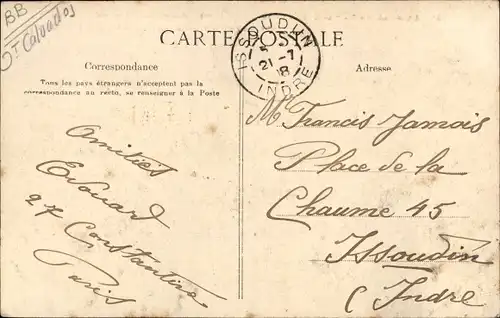 BB
Calvados
CARTE POSTALE
ISSOUDUN
5
21 - 7
18
INDRE
Correspondance
Adresse
Tous les pays étrangers n'acceptent pas la
correspondance au recto, se renseigner à la Poste
Amitiés
Edouard
27 Constantine
Paris
Mr Francis Jamois
Place de la
Chaume 45
Issoudun
(Indre